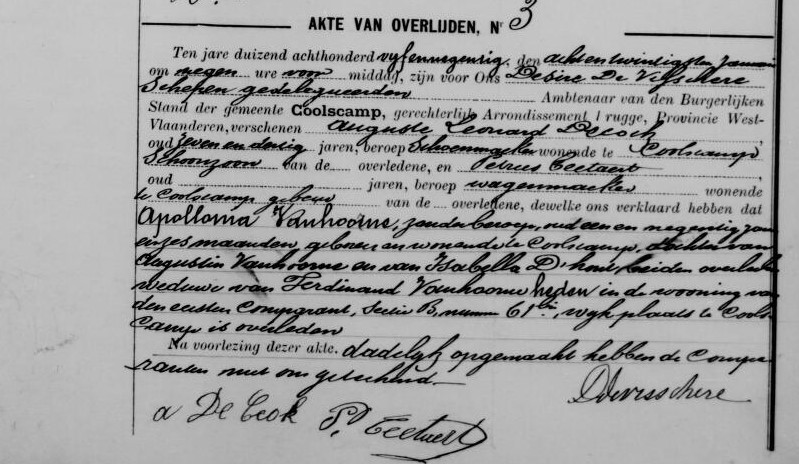 AKTE VAN OVERLIJDEN, Nr 3
Ten jare duizend achthonderd vyfennegentig, den achtentwintigsten januari
om negen ure voor middag, zijn voor Ons Desire De Visschere
Schepen gedelegueerden Ambtenaar van den Burgerlijken
Stand der gemeente Coolscamp, gerechterlijk Arrondissement Brugge, Provincie West-
Vlaanderen, verschenen Auguste Leonard Decock
oud zevenendertig jaren, beroep Schoenmaker wonende te Coolscamp
Schoonzoon van de overledene, en Petrus Eectaert,
oud jaren, beroep wagenmaker wonende
te Coolscamp gebeur van de overledene, dewelke ons verklaard hebben dat
Apollonia Vanhoorne, zonder beroep, oud een en negentig jaren
en zes maanden, geboren en wonende te Coolscamp, dochter van
Augustin Vanhoorne en van Isabella D'hont, beiden overleden
weduwe van Ferdinand Vanhoorne heden in de wooning van
den eersten Comparant, Sectie B, nummer 61bis, wyk plaats te Cools-
camp is overleden
Na voorlezing dezer akte, dadelyk opgemaakt hebben de Compa-
ranten met ons geteekend.
Ddevisschere
a De Cock P. Eectaert